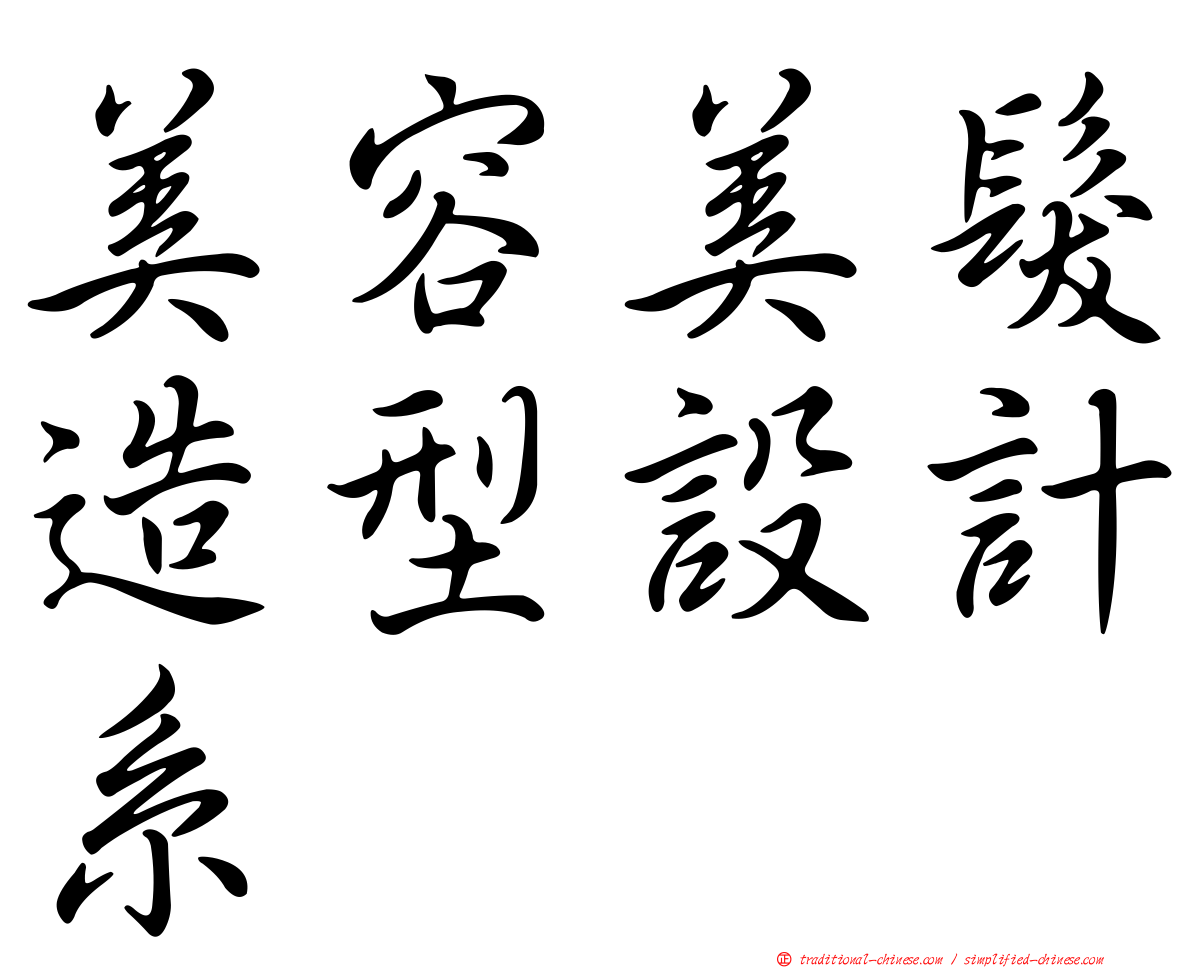 美容美髮
造型設計
系
正 traditional-chinese.com / simplified-chinese.com